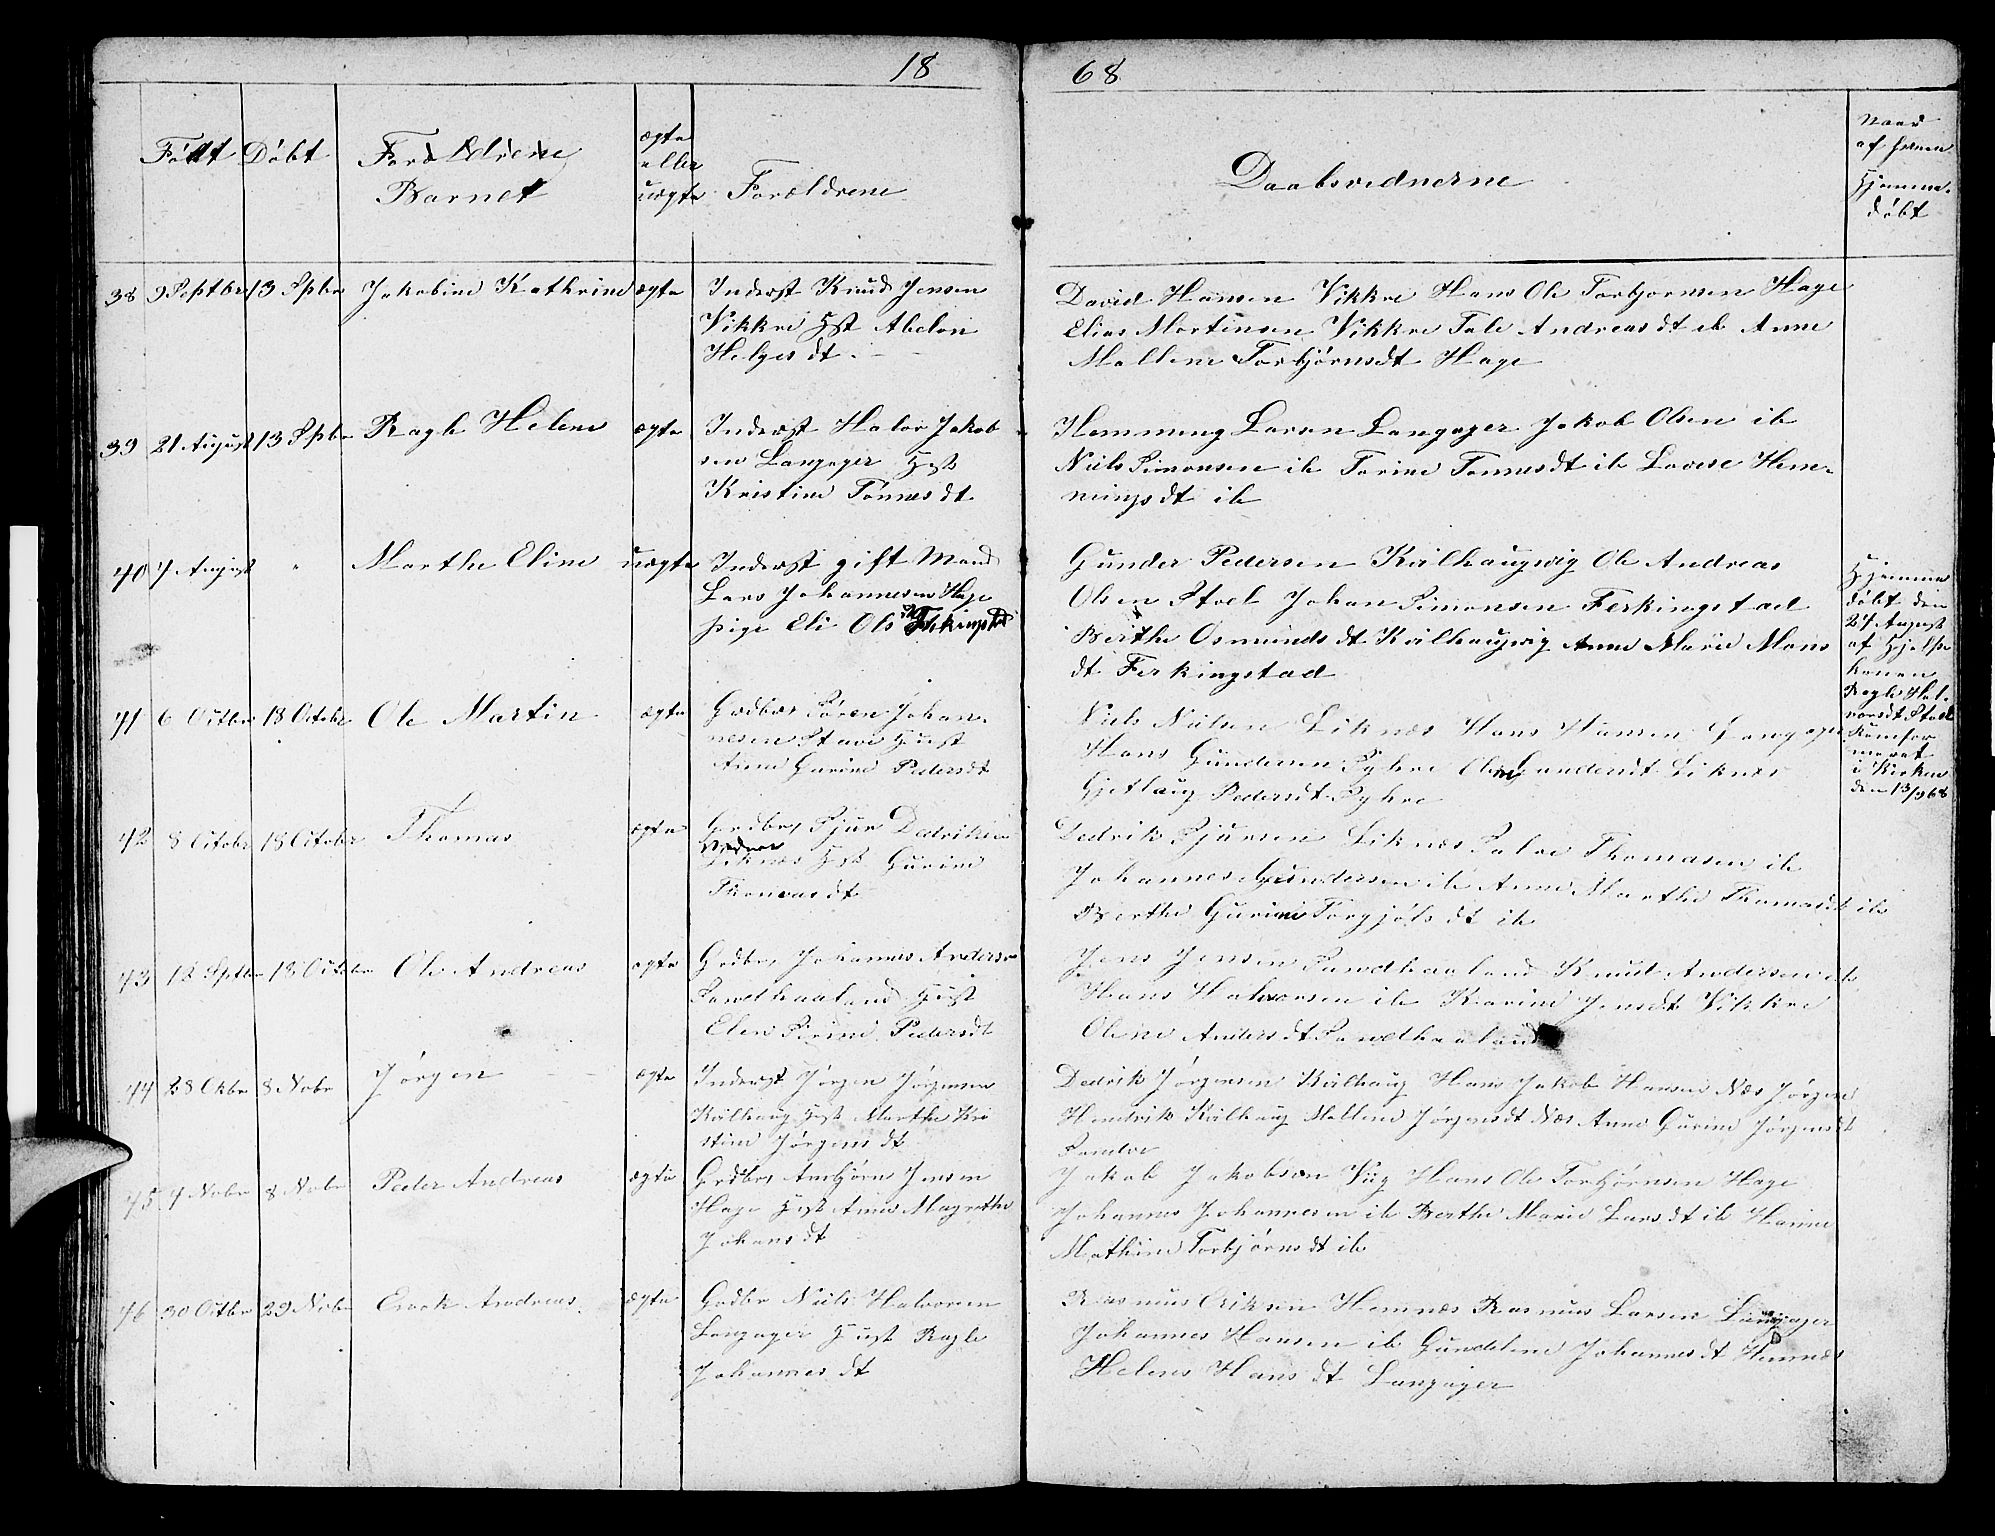 18 68
Født Døbt Forældrene
Barnet
ægte
eller
uægte
Forældrene
Daabsvidnerne
Naar
af hvem
Hjemme-
døbt
38 9 Septbr 13 Spbr Jakobine Kathrine ægte Inderst Knud Jensen
Vikkre Hst Abelon
Helges dt.
David Hansen Vikkre Hans Ole Torbjørnsen Hage
Elias Mortinsen Vikkre Tale Andreas dt ib Anne
Mallene Torbjørnsdt Hage
39 21 August 13 Spbr Ragle Helene ægte Inderst Halvor Jakob
sen Langager Hst
Kristine Tønnes dt
Hemming Larsen Langager Jakob Olsen ib
Niels Simonsen ib Torine Tønnesdt ib Lovise Hem-
mings dt ib
40 7 August " Marthe Eline uægte Inderst gift Mand
Lars Johannesen Hage
pige Eli Ols dt Ferkingstad
Gunder Pedersen Kvilhaugsvig Ole Andreas
Olsen Stol Johan Simonsen Ferkingstad
Berthe Osmunds dt Kvilhaugsvig Anne Marie Mons
dt Ferkingstad
Hjemme
døbt den
27 August
af Hjelpe
konen
Ragle Hal-
vorsdt Stol
Konfor
meret
i Kirken
den 13/9 68
41 6 Octbr 18 Octobr Ole Martin ægte Gaardbr Søren Johan-
nesen Stave Hust
Anne Gurine Pedersdt
Niels Nielsen Liknæs Hans Hansen Langager
Hans Gundersen Syhre Gundersdt Liknæs
Gjetlaug Pedersdt Syhre
42 8 Octobr 18 Octobr Thomas ægte Grdbr Sjur Dedriksen
Liknæs Hst Gurine
Thomas dt
Dedrik Sjursen Liknæs Salve Thomasen ib
Johannes Gundersen ib Anne Marthe Thomasdt ib
Berthe Gurine Torgjøls dt ib
43 12 Septbr 18 Octobr Ole Andreas ægte Grdbr Johannes Andersen
Sandhaaland Hust
Elen Sirine Pedersdt
Jens Jensen Sandhaaland Knud Andersen ib
Hans Halvorsen ib Karine Jensdt Vikkre
Olene Anders dt Sandhaaland
44 28 Okbr 8 Nobr Jørgen ægte Inderst Jørgen Jørgensen
Kvilhaug Hst Marthe Kri
stine Jørgens dt
Dedrik Jørgensen Kvilhaug Hans Jakob Hansen Næs Jørgen
Hendrik Kvilhaug Mallene Jørgensdt Næs Anne Gurine Jørgensdt
Sandve
45 4 Nobr 8 Nobr Peder Andreas ægte Grdbr Anbjørn Jensen
Hage Hst Anne Magrethe
Johans dt
Jakob Jakobsen Viig Hans Ole Torbjørnsen Hage
Johannes Johannesen ib Berthe Marie Lars dt ib Hanne
Mathine Torbjørns dt ib
46 30 Octbr 29 Nobr Enok Andreas ægte Grdbr Niels Halvorsen
Langager Hust Ragle
Johannes dt
Rasmus Eriksen Hemnæs Rasmus Larsen Langager
Johannes Hansen ib Gundeline Johannes dt Hemnæs
Helene Hans dt Langager